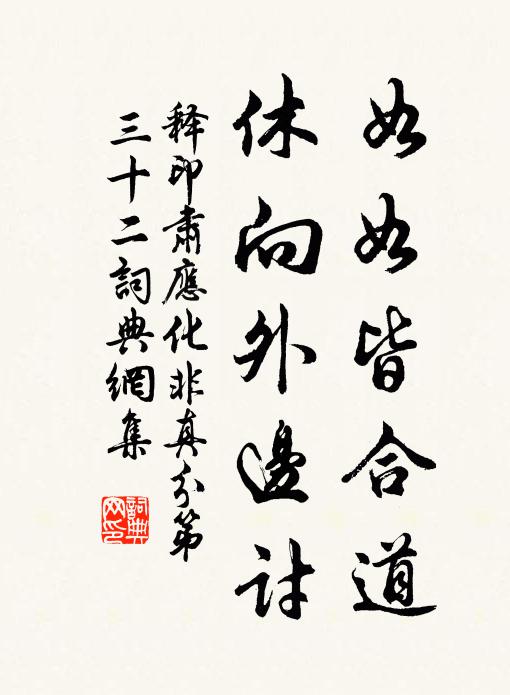 如如皆合道
休向外邊討
释印肃應化非真分第
三十二詞典網集
詞典
网印